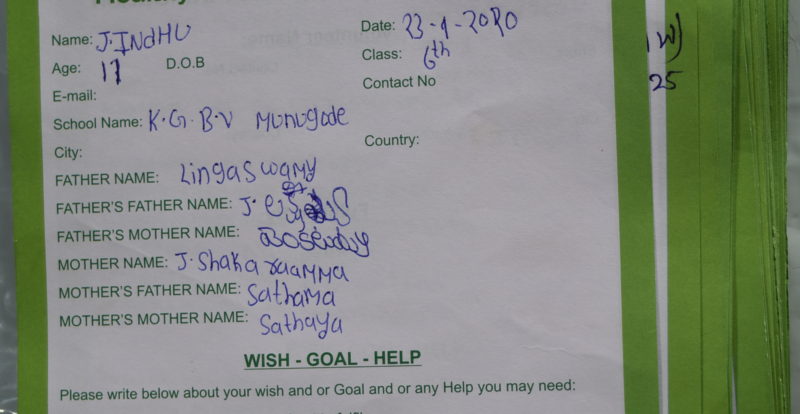 Name: J. INdHU
Date: 23-1-2020
Age: 11
D.O.B
Class: 6th
E-mail:
Contact No
School Name: K.G.B.V Munugode
City:
Country:
FATHER NAME: Lingaswamy
FATHER'S FATHER NAME: J.
FATHER'S MOTHER NAME:
MOTHER NAME: J. Shaka
MOTHER'S FATHER NAME: Sathama
MOTHER'S MOTHER NAME: Sathaya
WISH - GOAL - HELP
Please write below about your wish and or Goal and or any Help you may need:
25